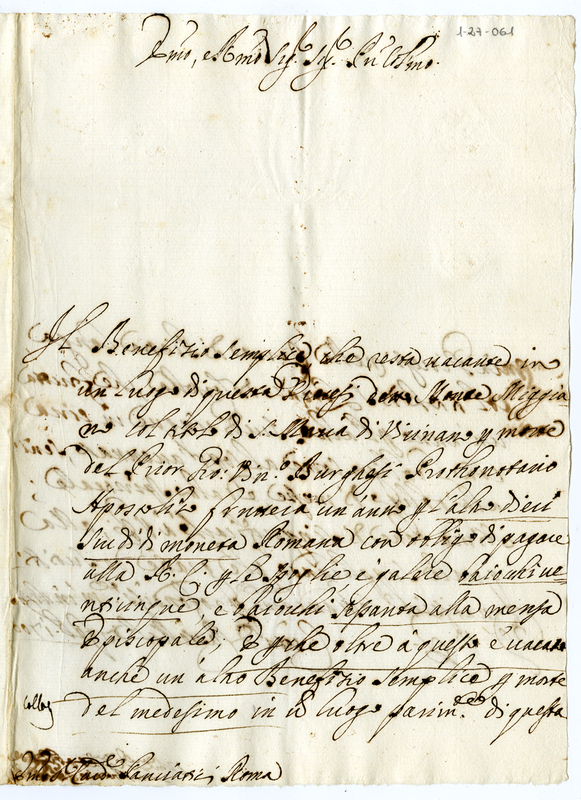 1-27-061
Emo, e Rmo Sig.e Sig.e Pn Colmo.
Il Benefizio semplice che resta vacante in
un luogo di questa Diocesi detto Monte Miggia
no col titolo di S. Maria di Vivnano p morte
del Prior Gio: Bn.o Burghesi Prothonotario
Apostolico frutterà un anno p l'altro dieci
scudi di moneta Romana con obligo di pagare
alla R. C. p le spoglie e galere baiochi ve-
nticinque e baiochi sesanta alla mensa
Episcopale; E p che oltre à questo è vacato
anche un altro Benefizio semplice p morte
del medesimo in luogo parim.te di questa
Collez
Emo S. Card.e Panciatici, Roma